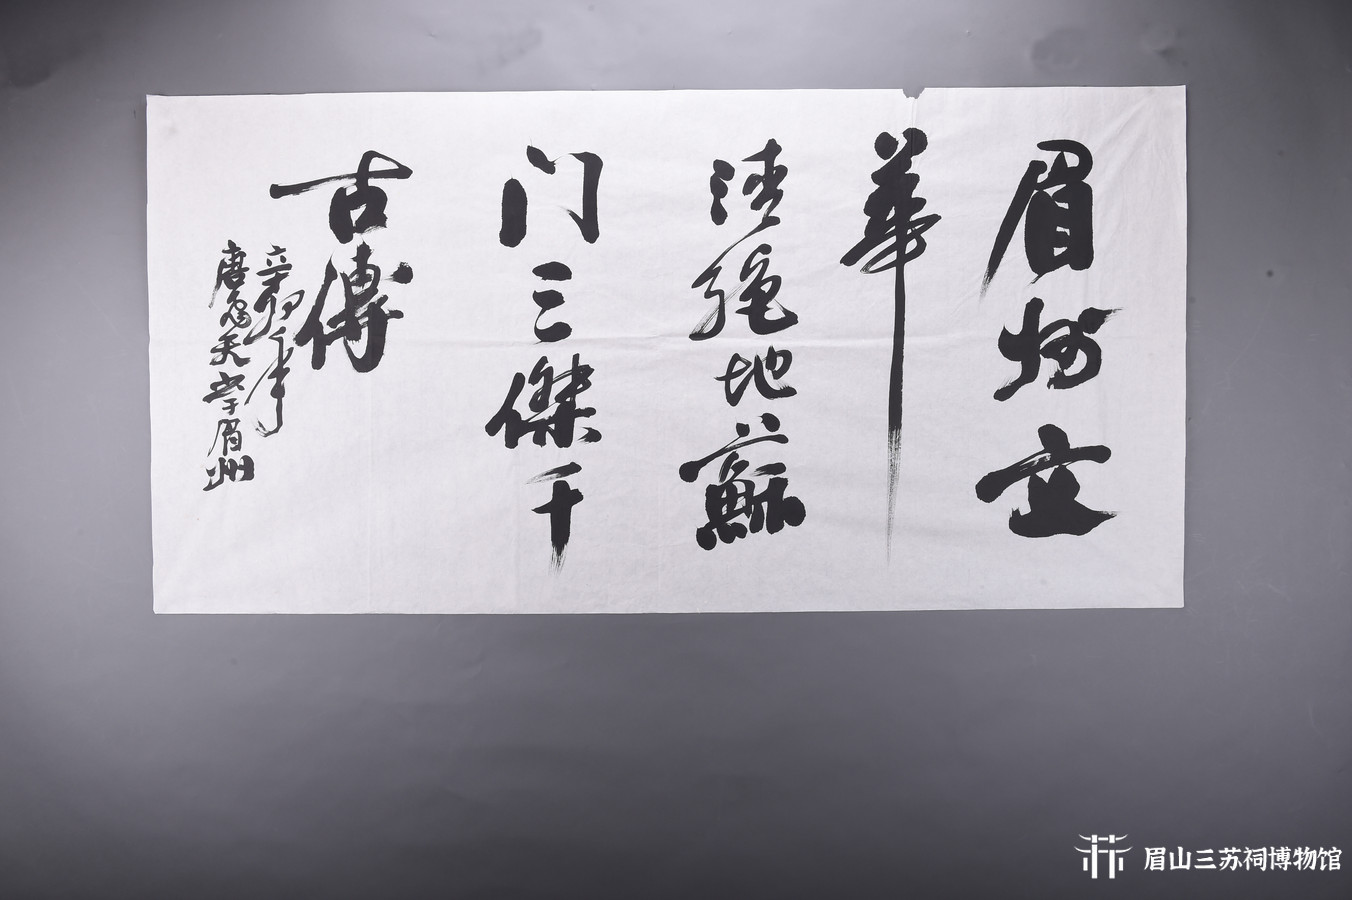 眉州立
華
清絶地蘇
门三傑千
古傳
辛卯年
唐 天 眉州
眉山三苏祠博物馆